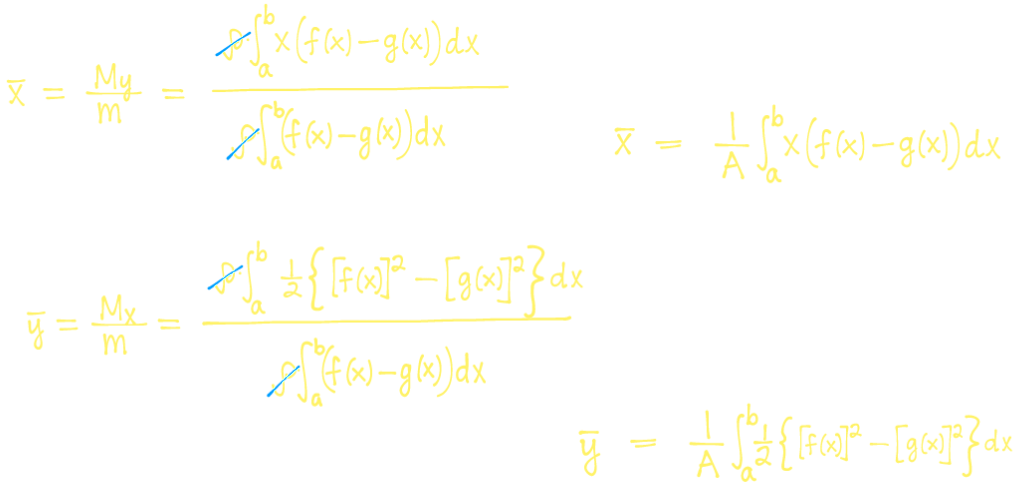 x̄ = My/m = ρ∫ₐᵇ x(f(x) − g(x))dx / ρ∫ₐᵇ (f(x) − g(x))dx
x̄ = 1/A ∫ₐᵇ x(f(x) − g(x))dx
ȳ = Mx/m = ρ∫ₐᵇ 1/2 {[f(x)]² − [g(x)]²}dx / ρ∫ₐᵇ (f(x) − g(x))dx
ȳ = 1/A ∫ₐᵇ 1/2 {[f(x)]² − [g(x)]²}dx